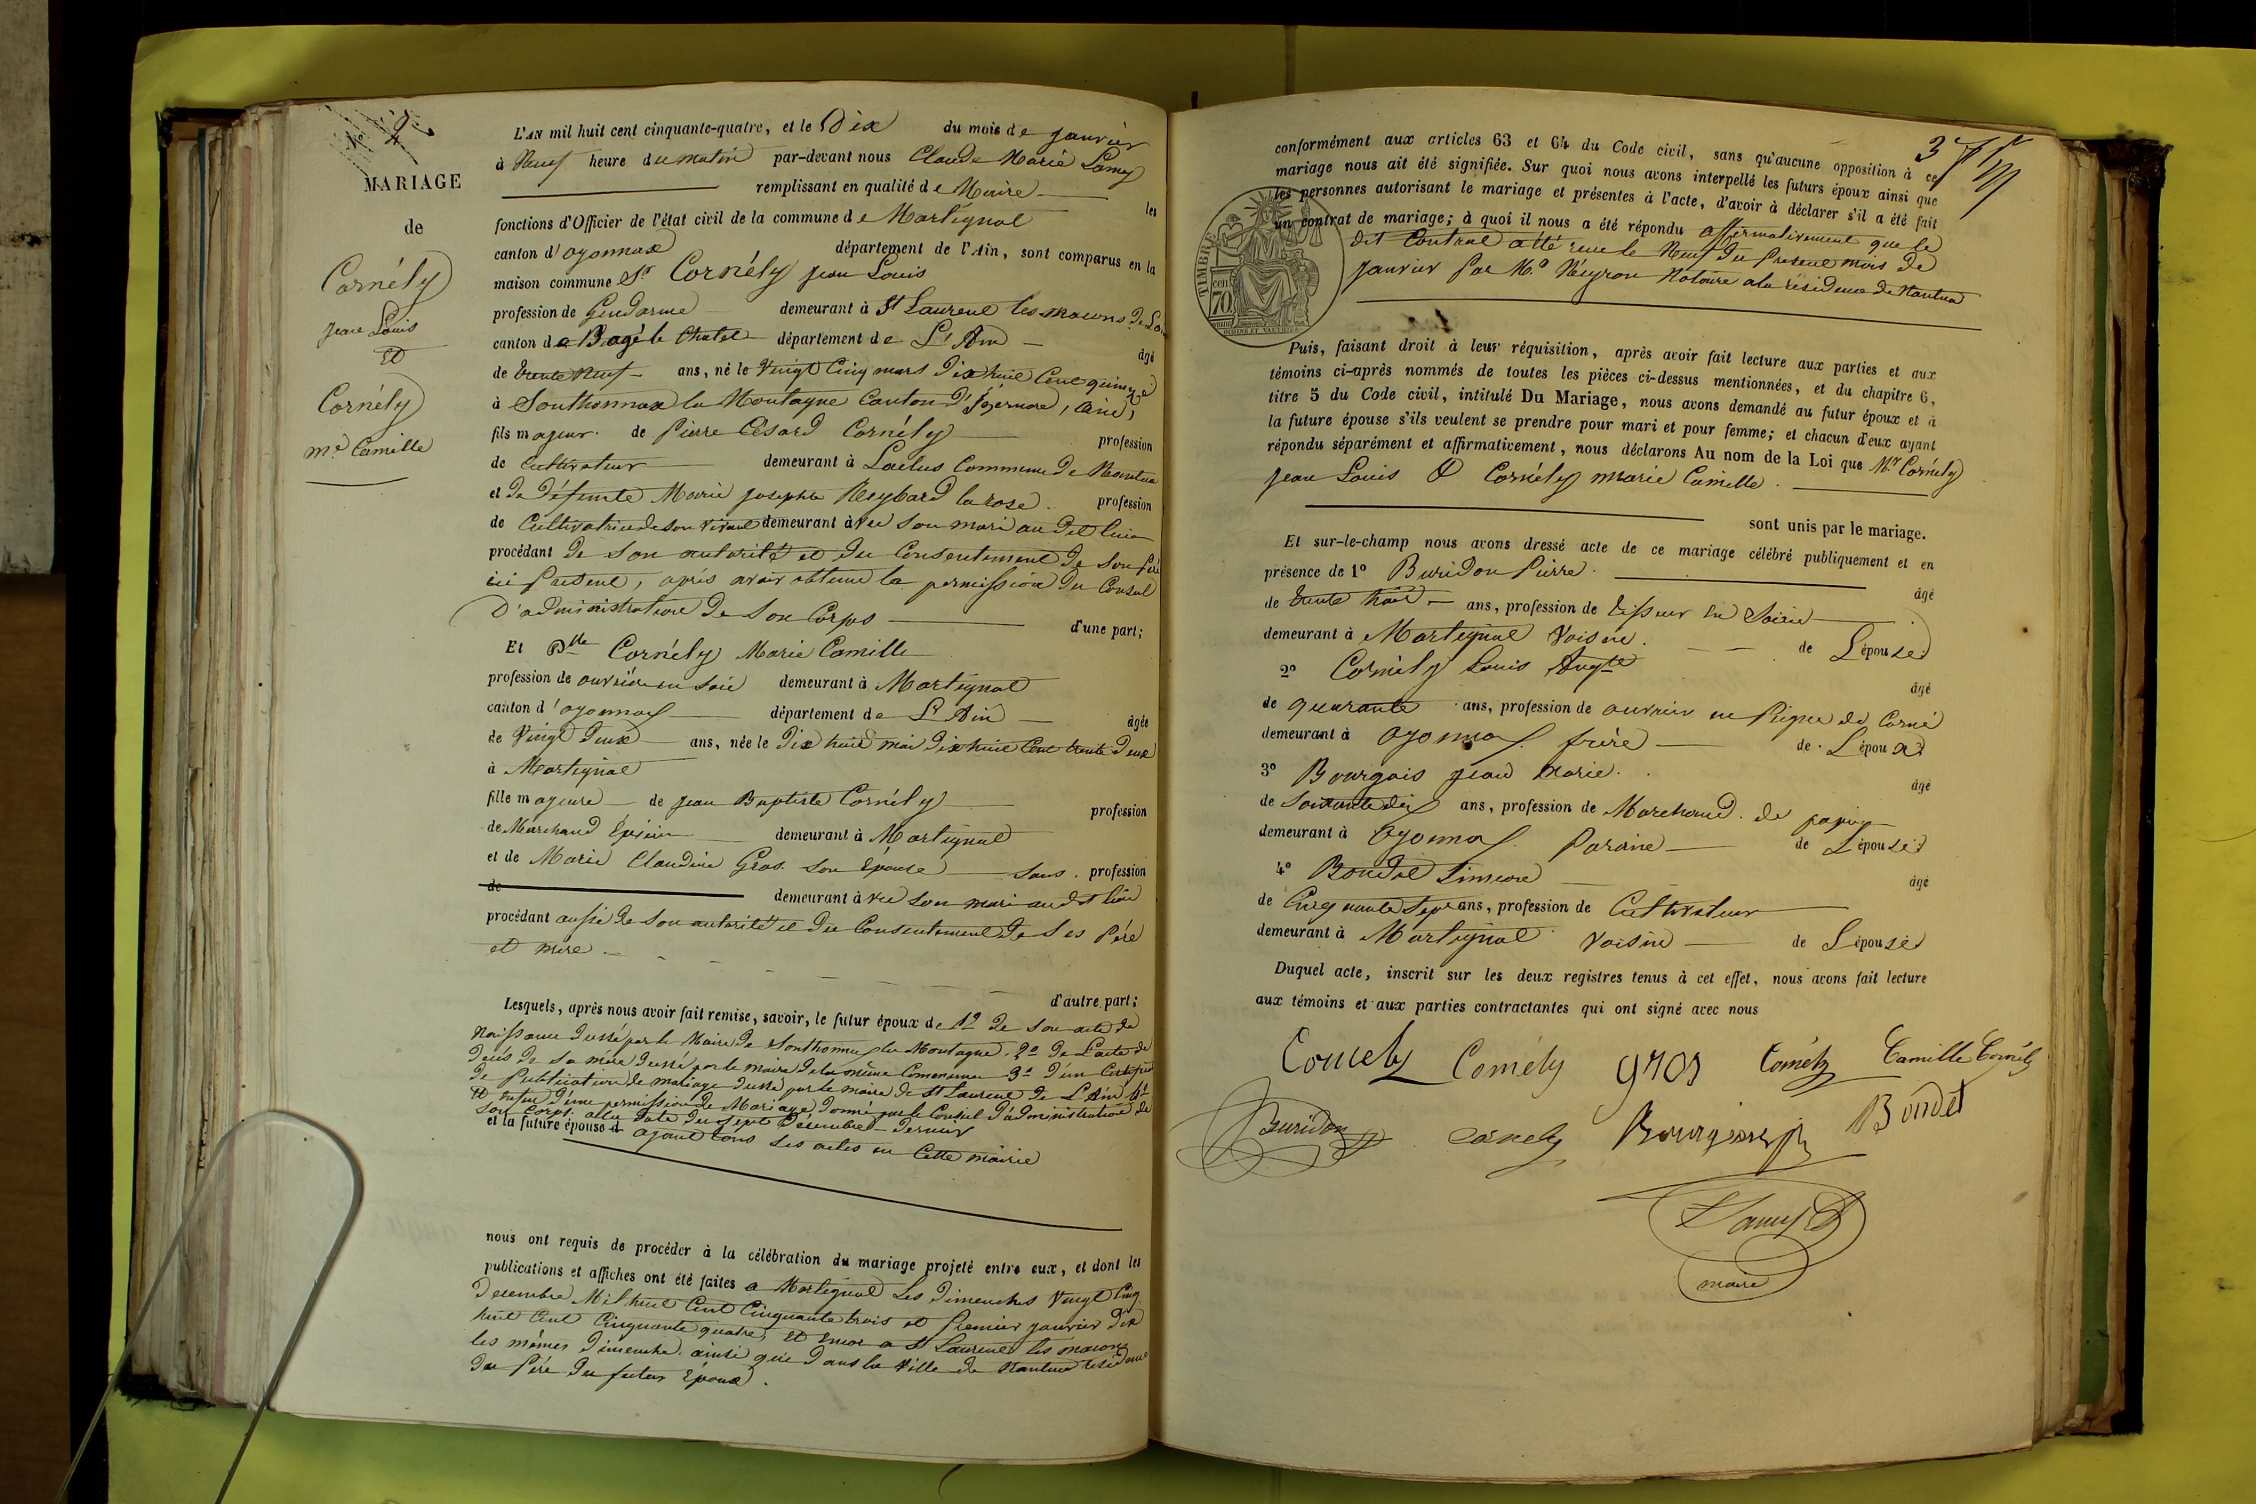 N° 2
MARIAGE
de
Cornély
jean Louis
Et
Cornély
Mie Camille
L'AN mil huit cent cinquante-quatre, et le Dix du mois de janvier
à Neuf heure du matin par-devant nous Claude Marie Lamy
remplissant en qualité de Maire les
fonctions d'Officier de l'état civil de la commune de Martignat
canton d'oyonnax département de l'Ain, sont comparus en la
maison commune Sr Cornély jean Louis
profession de Gendarme demeurant à St Laurent les macons
canton de Bagé le Chatel département de L'Ain âgé
de trente Neuf ans, né le Vingt Cinq mars Dix huit Cent quinze
à Sonthonnax la Montagne Canton d'Izernore, (Ain),
fils majeur de Pierre César Cornély profession
de Cultivateur demeurant à Commune de Nantua
et de Défunte Marie josephte Reybard larose profession
de Cultivatrice de son Vivant demeurant avec son mari au dit lieu
procédant de son autorité et du Consentement de son Père
ici Présent, après avoir obtenu la permission du Conseil
D'administration de Son Corps d'une part;
Et Dlle Cornély Marie Camille
profession de ouvrière en Soie demeurant à Martignat
canton d'oyonnax département de L'Ain âgée
de Vingt Deux ans, née le Dix huit mai Dix huit Cent trente Deux
à Martignat
fille majeure de jean Baptiste Cornély profession
de Marchand Epicier demeurant à Martignat
et de Marie Claudine Gros son Epouse sans profession
de demeurant avec son mari au dit lieu
procédant aussi de son autorité et du Consentement de Ses Père
et mère
d'autre part;
Lesquels, après nous avoir fait remise, savoir, le futur époux de 1° de Son acte de
Naissance Dressé par le Maire de Sonthonnax la Montagne 2° De L'acte de
Décès de Sa mère Dressé par le maire de la même Commune 3° D'un Certificat
De Publication de mariage Dressé par le maire de St Laurent de L'Ain 4°
Et enfin d'une permission de Mariage Donné par le Conseil D'administration de
Son Corps à la Date du Sept Décembre Dernier
et la future épouse d ayant tous Ses actes en Cette mairie
nous ont requis de procéder à la célébration du mariage projeté entre eux, et dont les
publications et affiches ont été faites a Martignat Les Dimenches Vingt Cinq
Décembre Mil huit Cent Cinquante trois et Premier janvier Dix
huit Cent Cinquante quatre, Et Encor a St Laurent les macons
les mêmes Dimenche ainsi que Dans la Ville de Nantua résidence
Du Père Du futur Époux.
3
conformément aux articles 63 et 64 du Code civil, sans qu'aucune opposition à ce
mariage nous ait été signifiée. Sur quoi nous avons interpellé les futurs époux ainsi que
les personnes autorisant le mariage et présentes à l'acte, d'avoir à déclarer s'il a été fait
un contrat de mariage; à quoi il nous a été répondu affirmativement que le
dit Contrat a été reçu le Neuf Du Présent mois de
janvier Par Me Neyron Notaire a la résidence de Nantua
TIMBRE
cen
70
Puis, faisant droit à leur réquisition, après avoir fait lecture aux parties et aux
témoins ci-après nommés de toutes les pièces ci-dessus mentionnées, et du chapitre 6,
titre 5 du Code civil, intitulé Du Mariage, nous avons demandé au futur époux et à
la future épouse s'ils veulent se prendre pour mari et pour femme; et chacun d'eux ayant
répondu séparément et affirmativement, nous déclarons Au nom de la Loi que Mr Cornély
jean Louis & Cornély Marie Camille
sont unis par le mariage.
Et sur-le-champ nous avons dressé acte de ce mariage célébré publiquement et en
présence de 1° Buridon Pierre âgé
de trente trois ans, profession de tisseur en Soirie
demeurant à Martignat Voisin de L'épouse
2° Cornély Louis Augte âgé
de quarante ans, profession de ouvrier en Peigne de Corne
demeurant à Oyonnax frère de L'époux
3° Bourgois jean Marie âgé
de Soixante dix ans, profession de Marchand de papier
demeurant à Oyonnax Parain de L'épouse
4° Bondet Simeon âgé
de Cinq uante Sept ans, profession de Cultivateur
demeurant à Martignat Voisin de L'épouse
Duquel acte, inscrit sur les deux registres tenus à cet effet, nous avons fait lecture
aux témoins et aux parties contractantes qui ont signé avec nous
Cornely Cornély gros Cornély Camille Cornély
Buridon Cornely Bourgeois Bondet
Lamy
maire